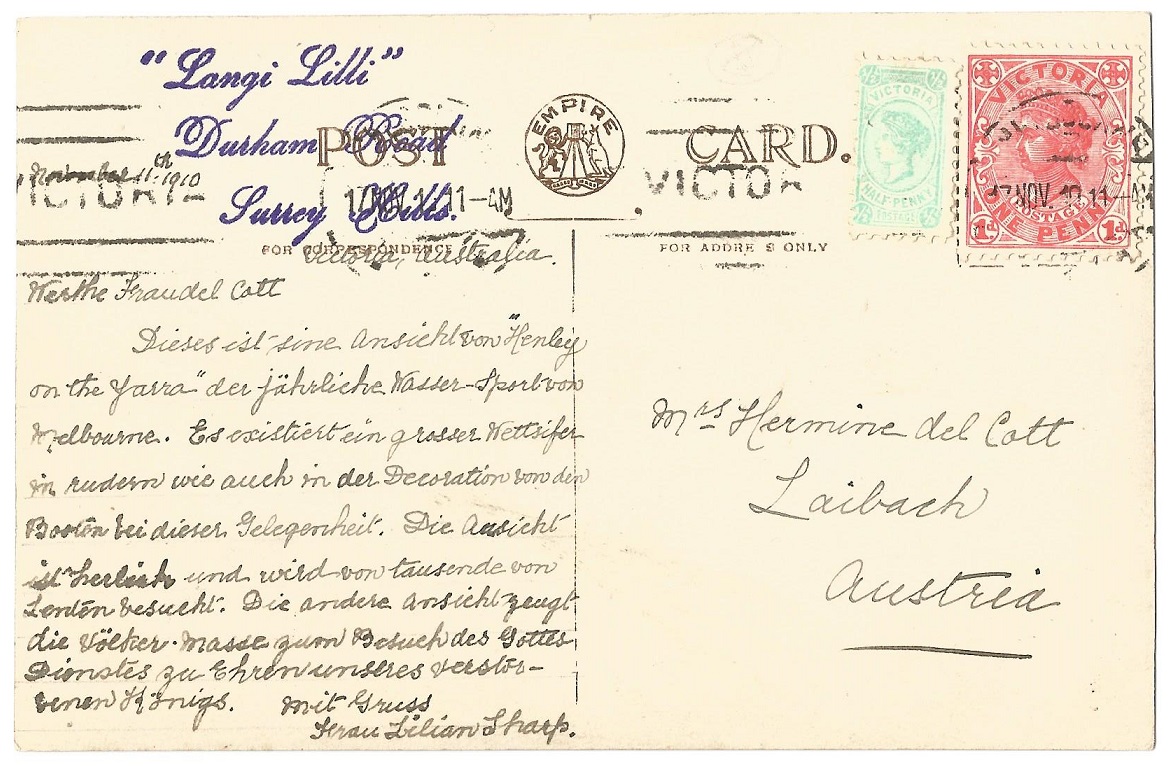 "Langi Lilli"
Durham Road
Surrey Hills.
Victoria, Australia.
November 11th. 1910
POST CARD.
EMPIRE
FOR CORRESPONDENCE
FOR ADDRE S ONLY
VICTORIA
HALF-PENNY
VICTORIA
POSTAGE
ONE PENNY
1d 1d
VICTOR
17 NOV. 10 11-AM
17 NOV. 10 11-AM
Werthe Fraudel Cott
Dieses ist eine Ansicht von "Henley
on the Yarra" der jährliche Wasser-Sport von
Melbourne. Es existiert ein grosser Wetteifer
in rudern wie auch in der Decoration von den
Booten bei dieser Gelegenheit. Die Ansicht
ist herlich und wird von tausende von
Leuten besucht. Die andere Ansicht zeugt
die Völker-Masse zum Besuch des Gottes-
Dienstes zu Ehren unseres verstor-
benen Königs. Mit Gruss
Frau Lilian Sharp.
Mrs Hermine del Cott
Laibach
Austria